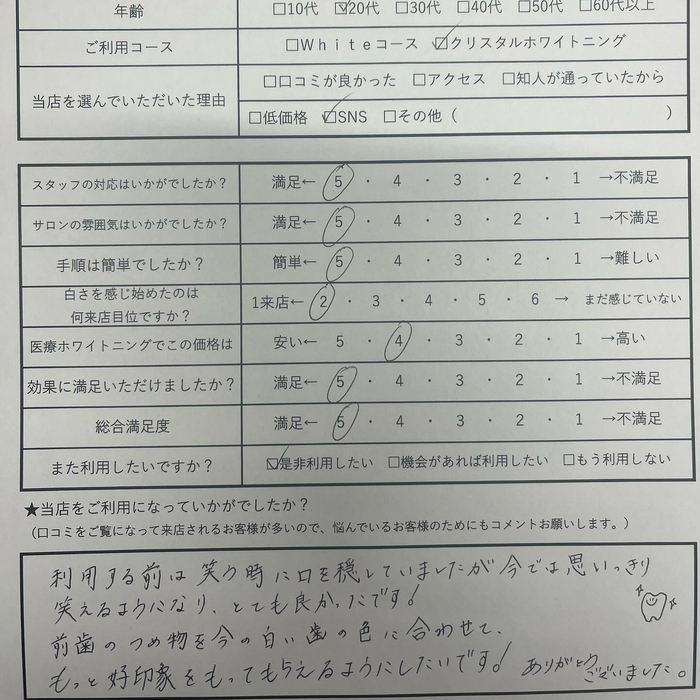 年齢 □10代 ☑20代 □30代 □40代 □50代 □60代以上
ご利用コース □Whiteコース ☑クリスタルホワイトニング
当店を選んでいただいた理由 □口コミが良かった □アクセス □知人が通っていたから
□低価格 ☑SNS □その他（ ）
スタッフの対応はいかがでしたか？ 満足← 5 ・ 4 ・ 3 ・ 2 ・ 1 →不満足
サロンの雰囲気はいかがでしたか？ 満足← 5 ・ 4 ・ 3 ・ 2 ・ 1 →不満足
手順は簡単でしたか？ 簡単← 5 ・ 4 ・ 3 ・ 2 ・ 1 →難しい
白さを感じ始めたのは
何来店目位ですか？ 1来店← 2 ・ 3 ・ 4 ・ 5 ・ 6 → まだ感じていない
医療ホワイトニングでこの価格は 安い← 5 ・ 4 ・ 3 ・ 2 ・ 1 →高い
効果に満足いただけましたか？ 満足← 5 ・ 4 ・ 3 ・ 2 ・ 1 →不満足
総合満足度 満足← 5 ・ 4 ・ 3 ・ 2 ・ 1 →不満足
また利用したいですか？ ☑是非利用したい □機会があれば利用したい □もう利用しない
★当店をご利用になっていかがでしたか？
（口コミをご覧になって来店されるお客様が多いので、悩んでいるお客様のためにもコメントお願いします。）
利用する前は笑う時に口を隠していましたが今では思いっきり
笑えるようになり、とても良かったです！
前歯のつめ物を今の白い歯の色に合わせて、
もっと好印象をもってもらえるようにしたいです！ ありがとうございました。